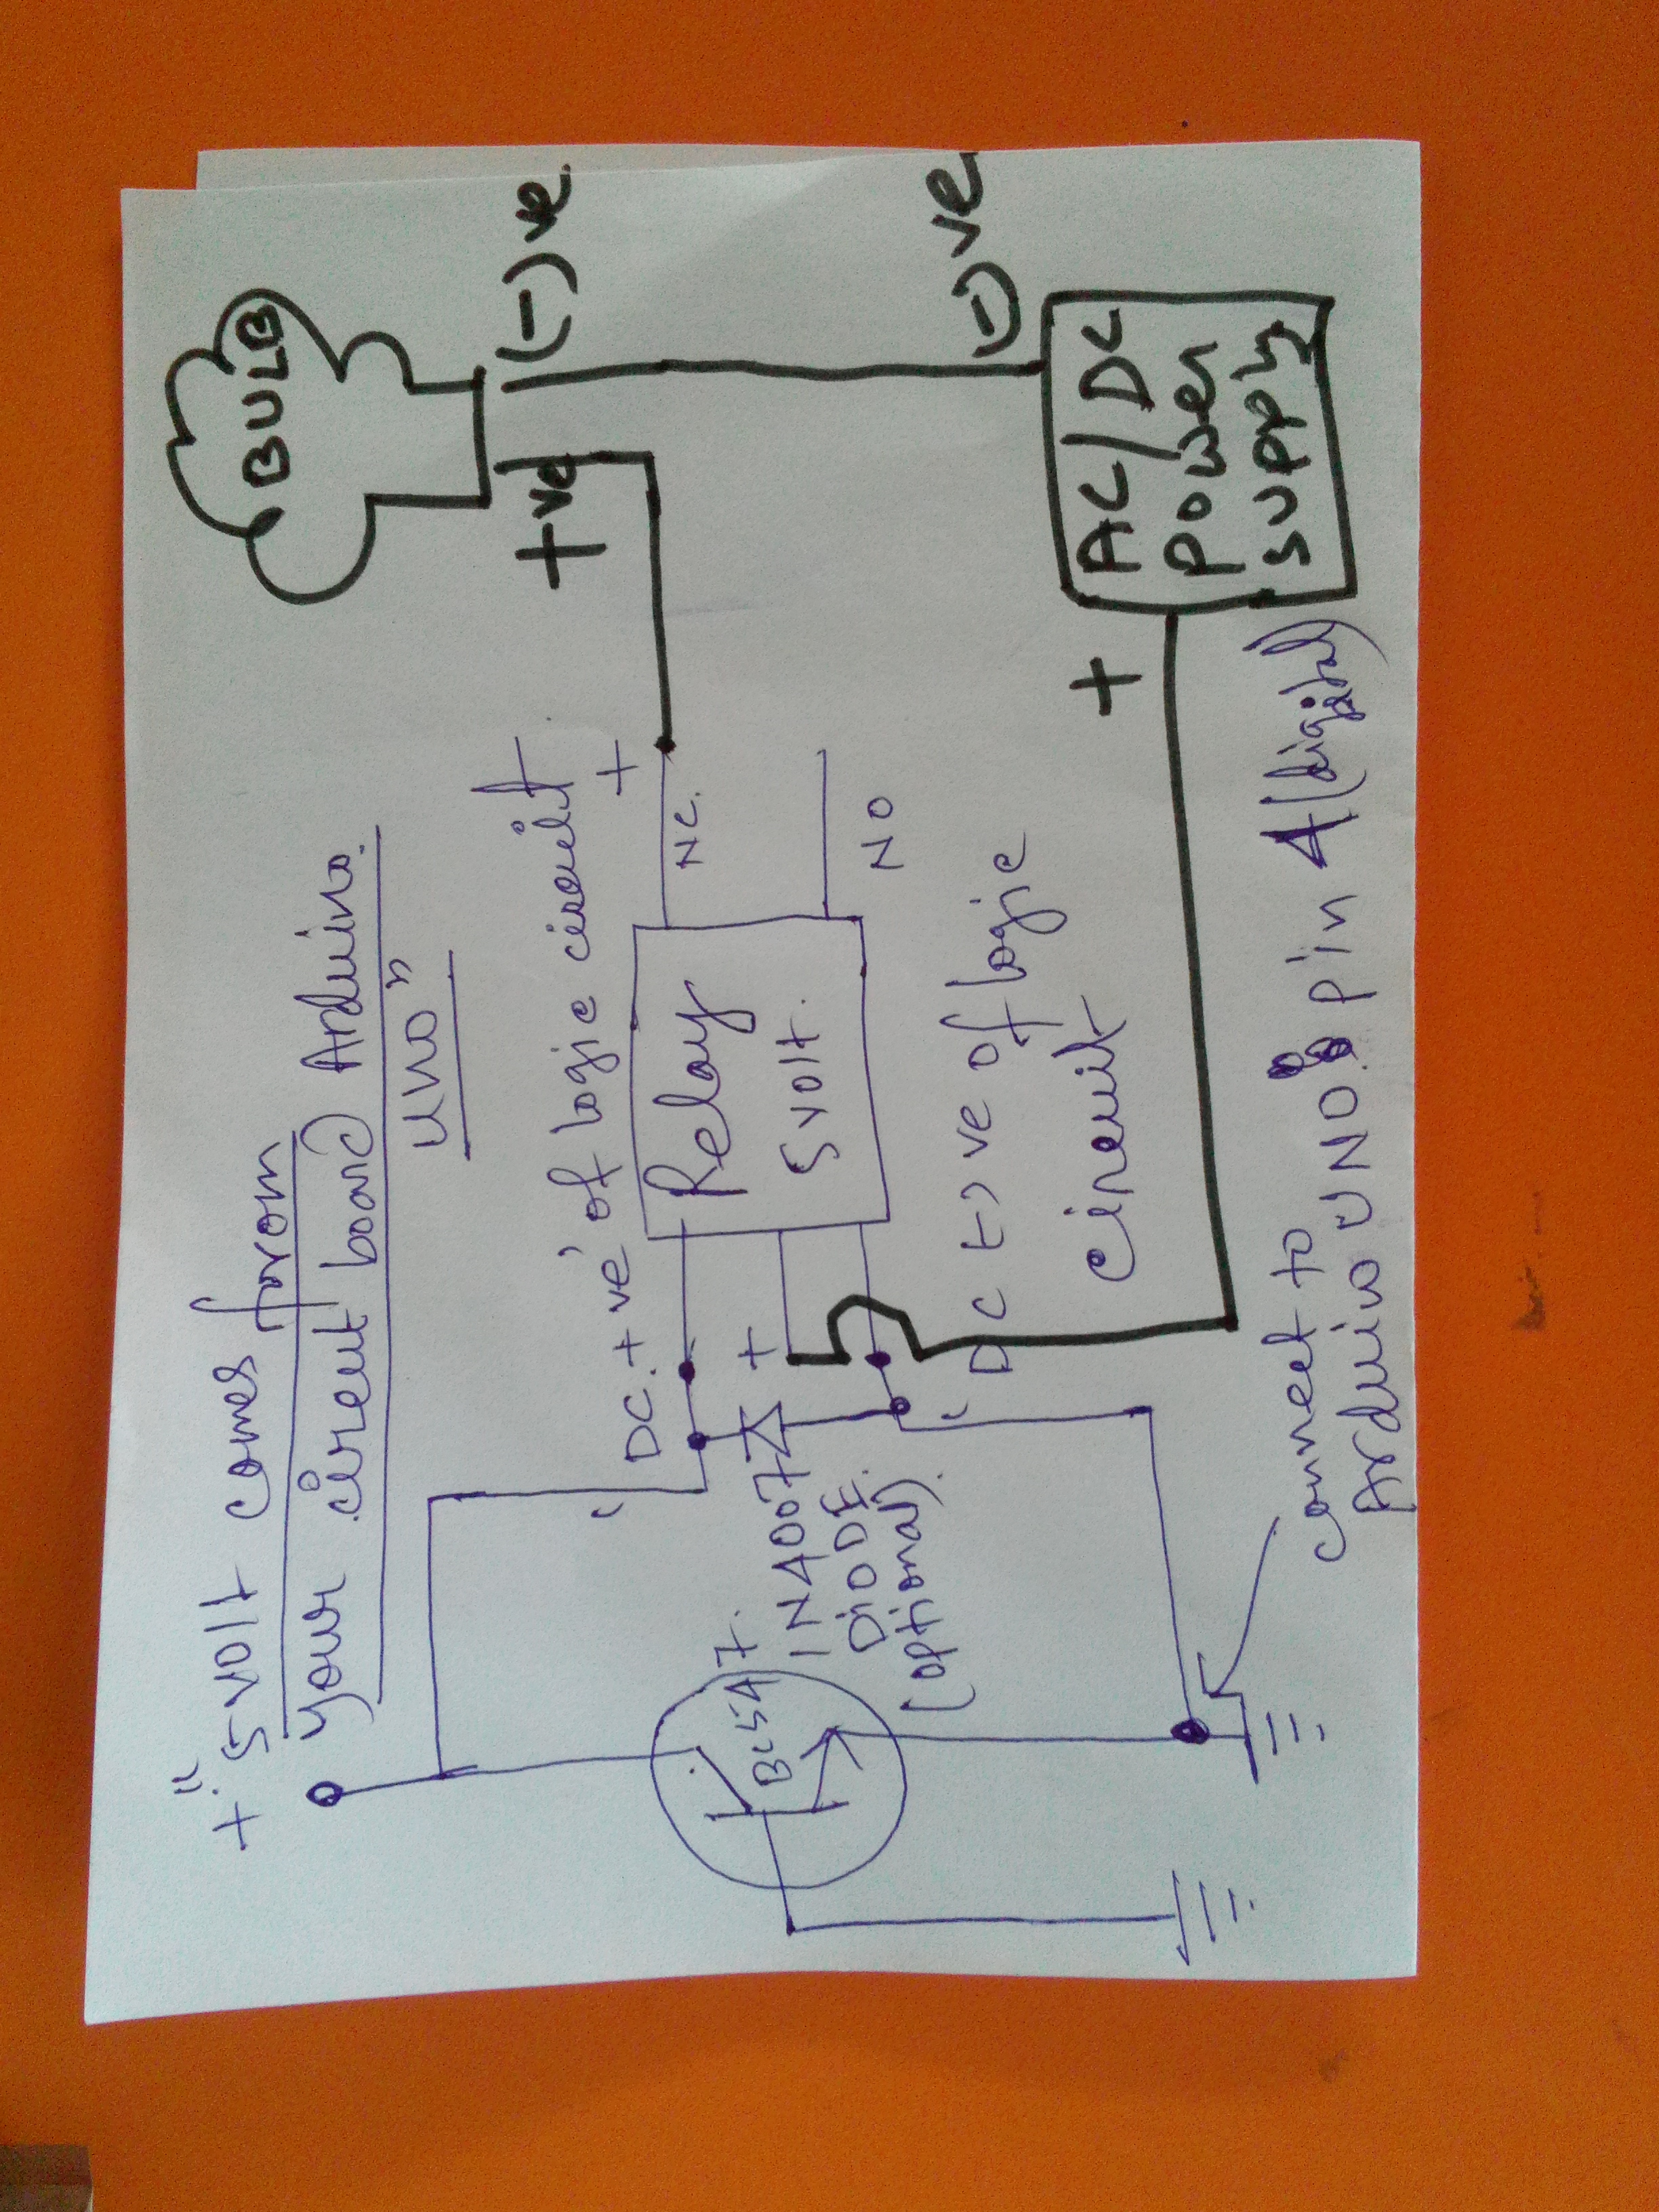 +"5volt comes from
your circuit board Arduino
uno"
BULB
+ve
(-)ve
'DC.+ve' of logic circuit
+
NC.
Relay
5volt.
NO
+
BC547
1N4007
DIODE
(optional).
'DC (-)ve of logic
circuit
(-)ve
AC/DC
Power
supply
+
connect to
Arduino UNO: pin 4(digital)